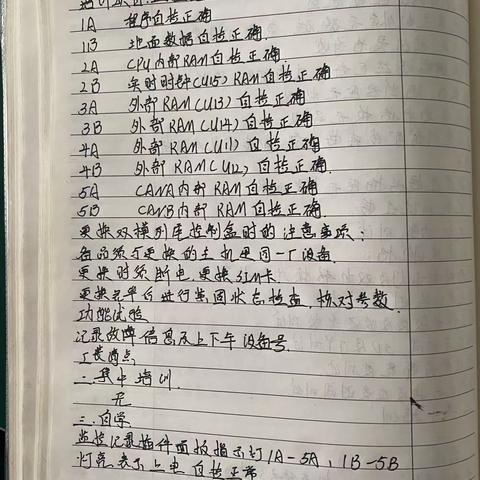 1A 程序自检正确
1B 地面数据自检正确.
2A CPU内部RAM自检正确.
2B 实时时钟(U15)RAM自检正确
3A 外部RAM(U13)自检正确
3B 外部RAM(U14)自检正确
4A 外部RAM(U11)自检正确
4B 外部RAM(U12)自检正确.
5A CANA内部RAM自检正确
5B CANB内部RAM自检正确.
更换双模列尾控制盒时的注意事项:
备品须与更换的主机是同一厂设备.
更换时须断电.更换SIM卡
更换完毕后进行紧固状态检查,核对号数.
功能试验
记录故障信息及上下车设备号.
工装两点
二.集中培训.
无
三.自学
监控记录插件面板指示灯1A-5A,1B-5B
灯亮表示上电自检正常